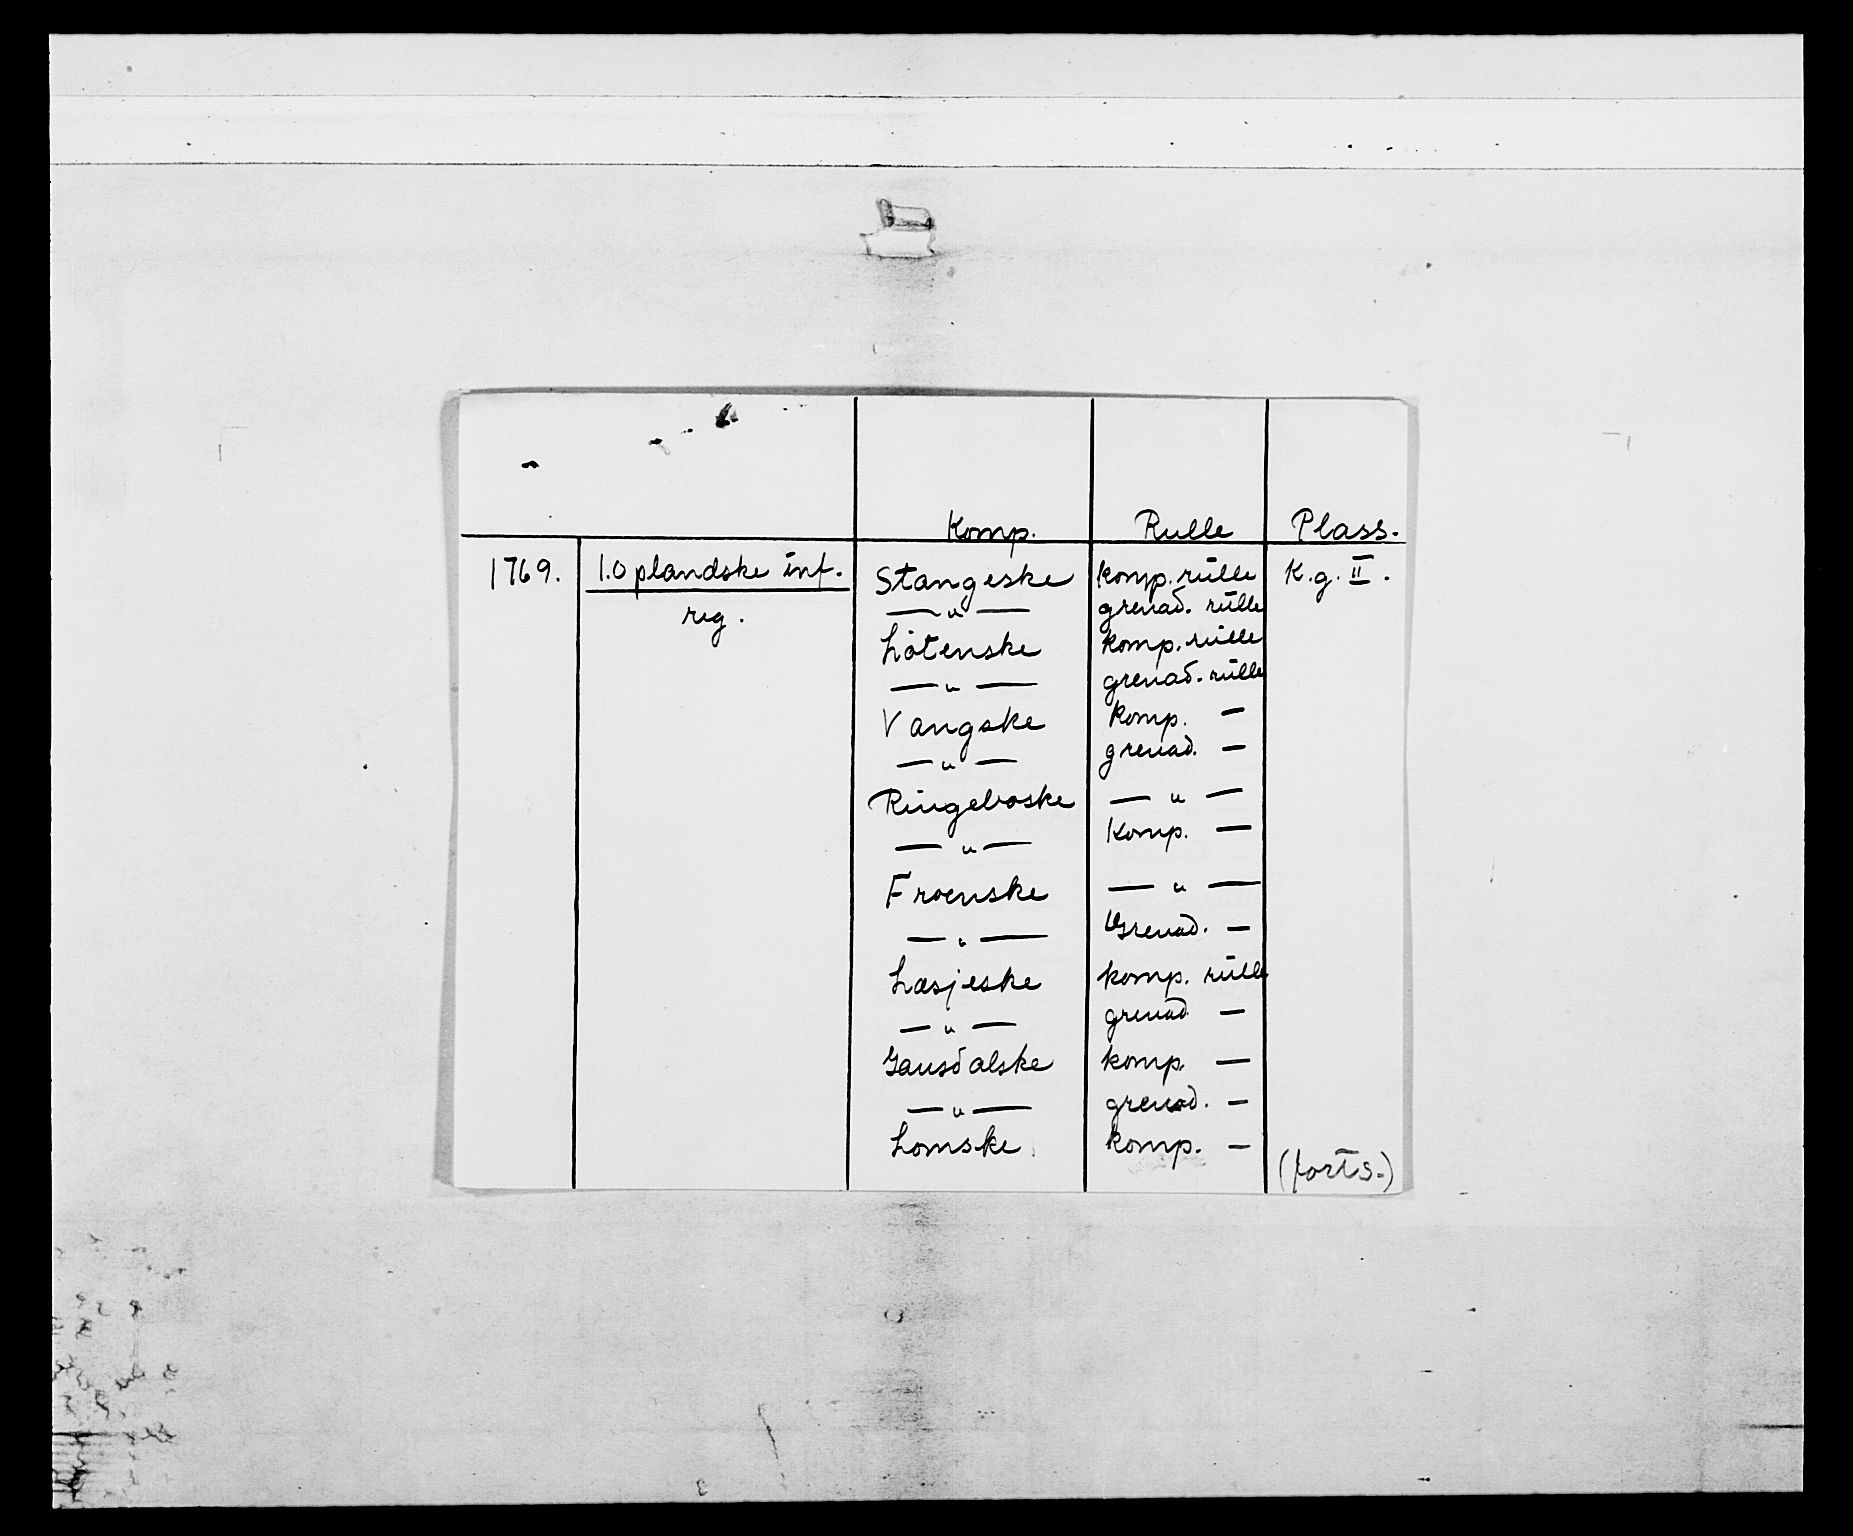 Komp. Rulle Plass.
1769. 1.Oplandske inf. Stangeske komp. rulle K.g. II.
reg. — " — grenad. rulle
Løtenske komp. rulle
— " — grenad. rulle
Vangske komp. —
— " — grenad. —
Ringeboske — " —
— " — Komp. —
Froenske — " —
— " — Grenad. —
Læsjeske komp. rulle
— " — grenad —
Gausdalske komp. —
— " — grenad. —
Lomske komp. —
(forts.)